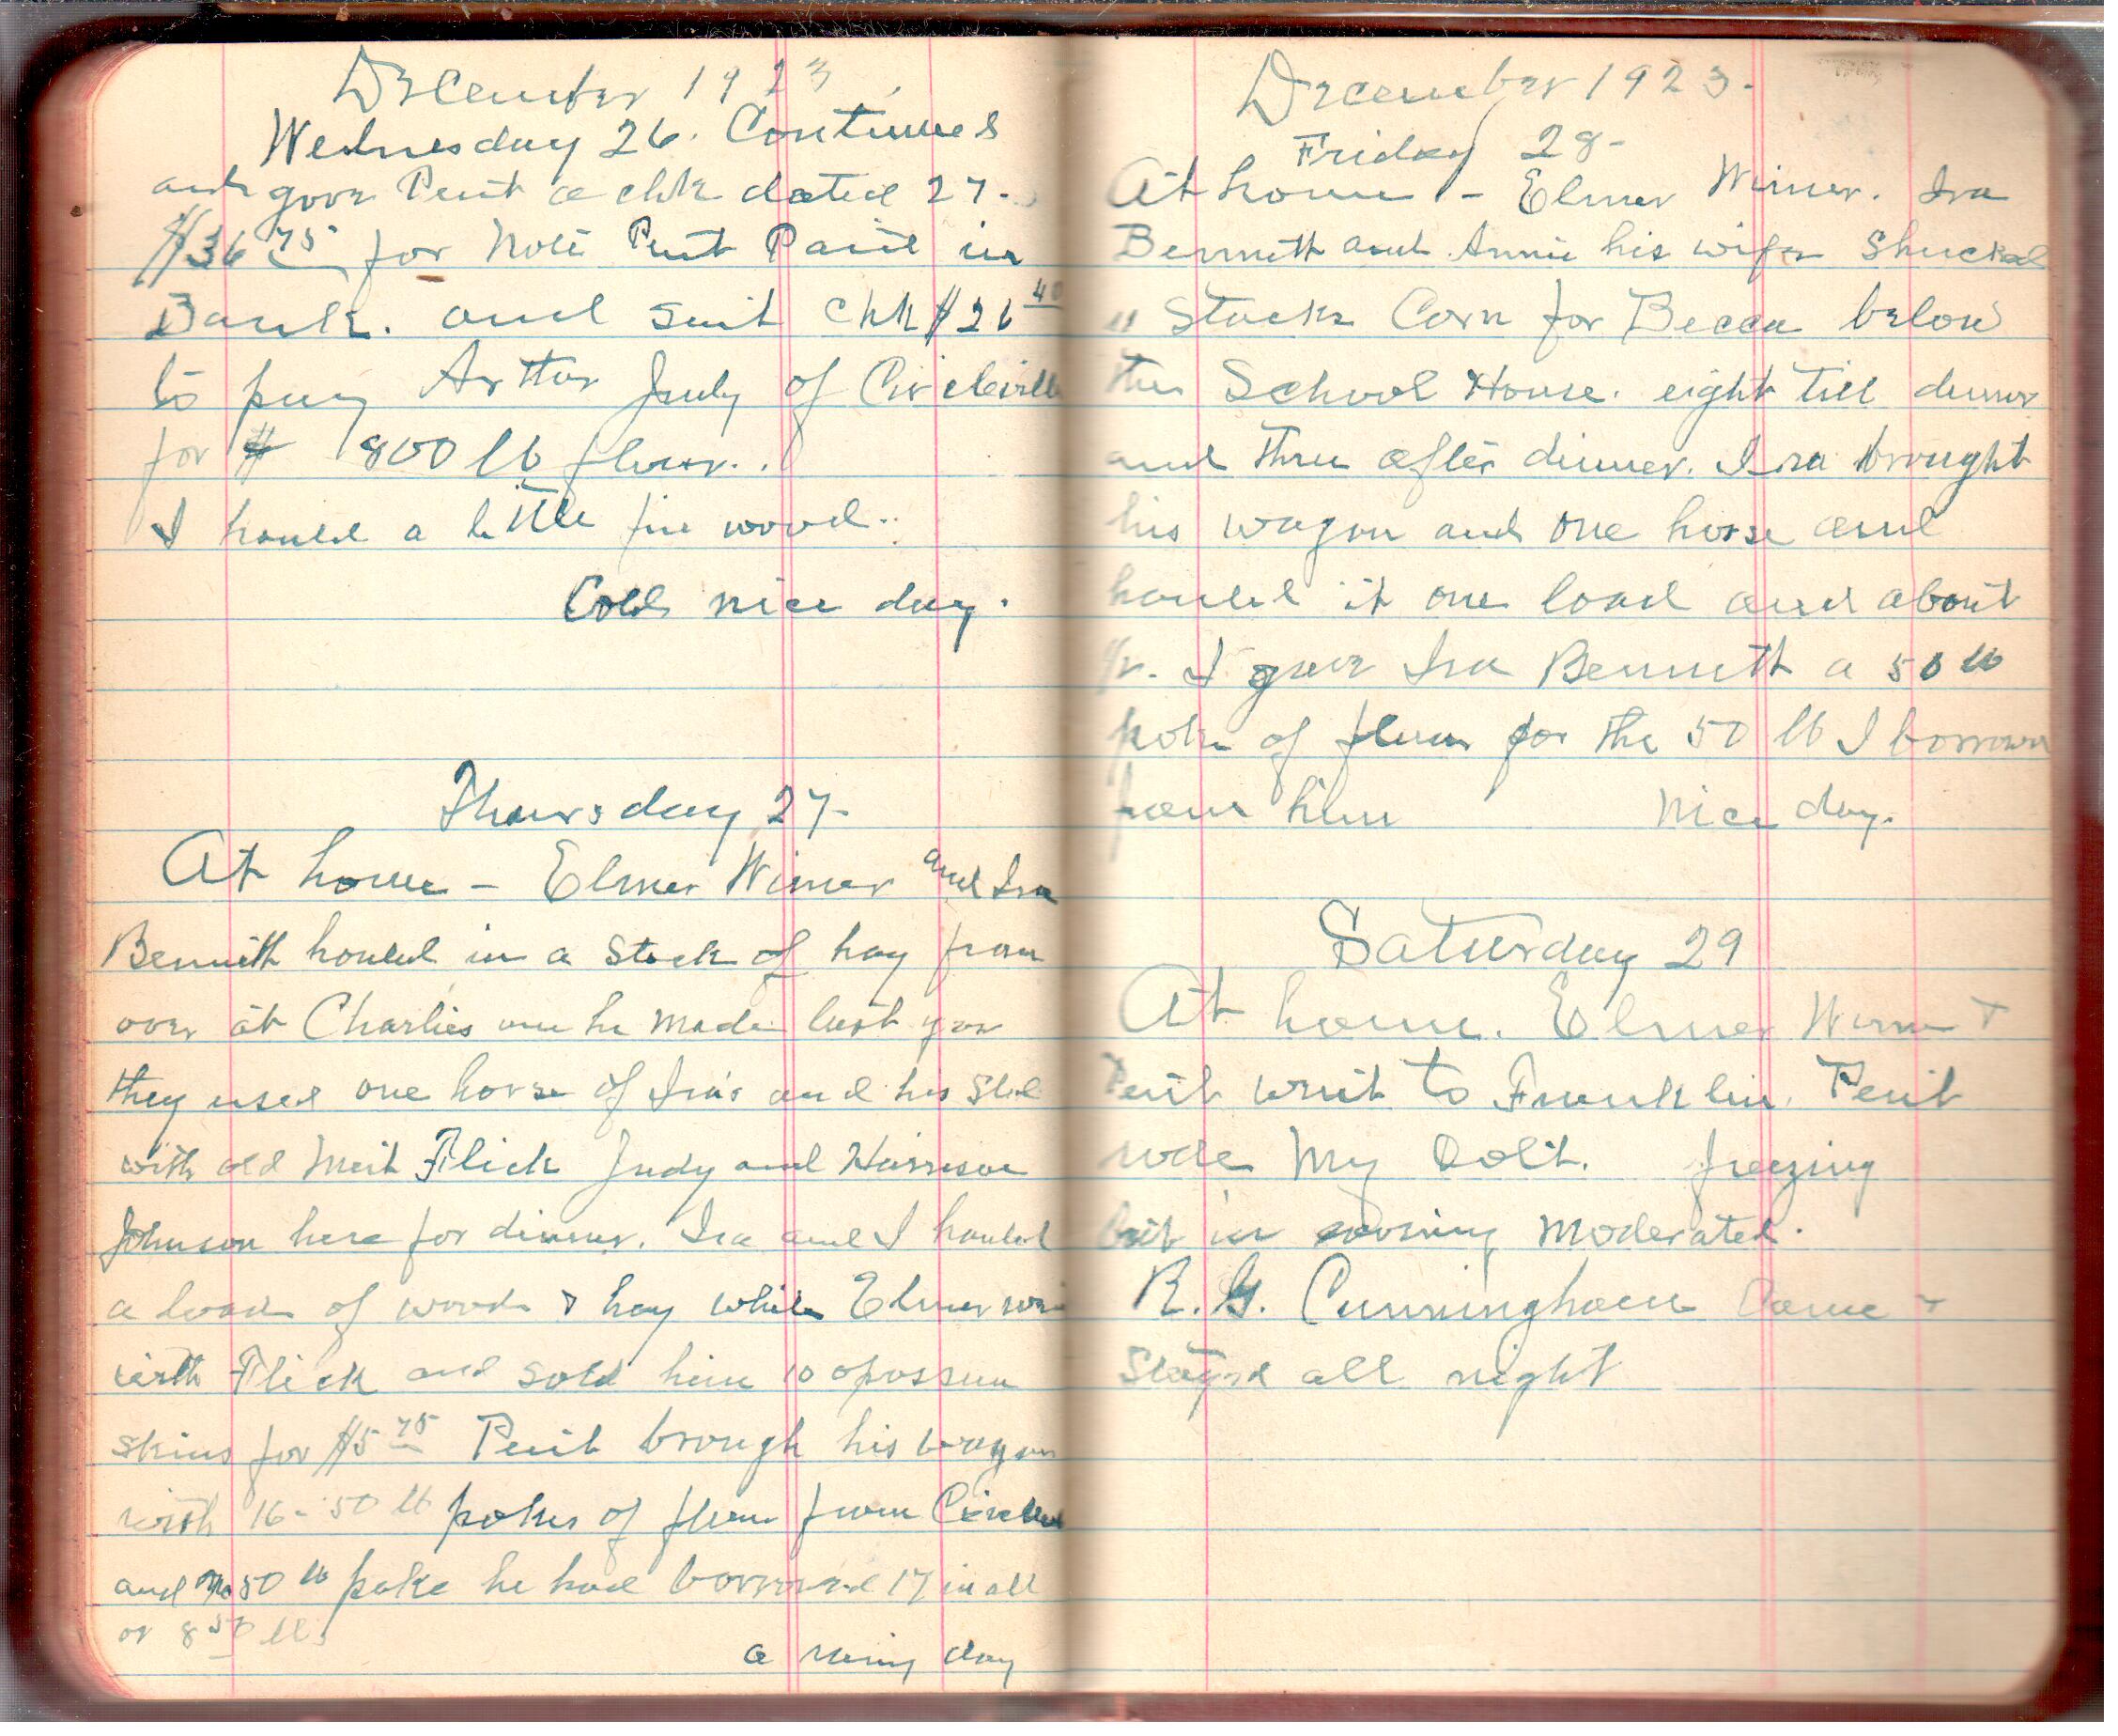 December 1923
Wednesday 26. Continued
and gave Pent a chk dated 27-
$36 75 for Note Pent Paid in
Bank. and sent chk $26 40
to pay Arthur Judy of Circleville
for $ 800 lb flour..
I hauled a little fire wood..
Cold nice day.
Thursday 27-
At home - Elmer Wimer and Ira
Bennett hauled in a stack of hay from
over at Charlies one he made last year
they used one horse of Ira's and his sled
with old Flick Judy and Harrison
Johnson here for dinner. Ira and I hauled
a load of wood & hay while Elmer
with Flick and sold him 10 opossum
skins for $5 75 Pent brough his wagon
with 16- 50 lb pokes of flour from
and 50 lb poke he had borrowed 17 in all
or 850 lbs
a day
December 1923.
Friday 28-
At home - Elmer Wimer. Ira
Bennett and Annie his wife Shucked
11 Stacks Corn for Becca below
the School House. eight till dinner
and three after dinner. Ira brought
his wagon and one horse and
hauled it one load and about
1/2. I gave Ira Bennett a 50 lb
poke of flour for the 50 lb I borrowed
from him Nice day.
Saturday 29
At home. Elmer Wimer +
Pent went to Franklin. Pent
rode My Colt. freezing
but in evening Moderated.
R. G. Cunningham Came +
Stayed all night